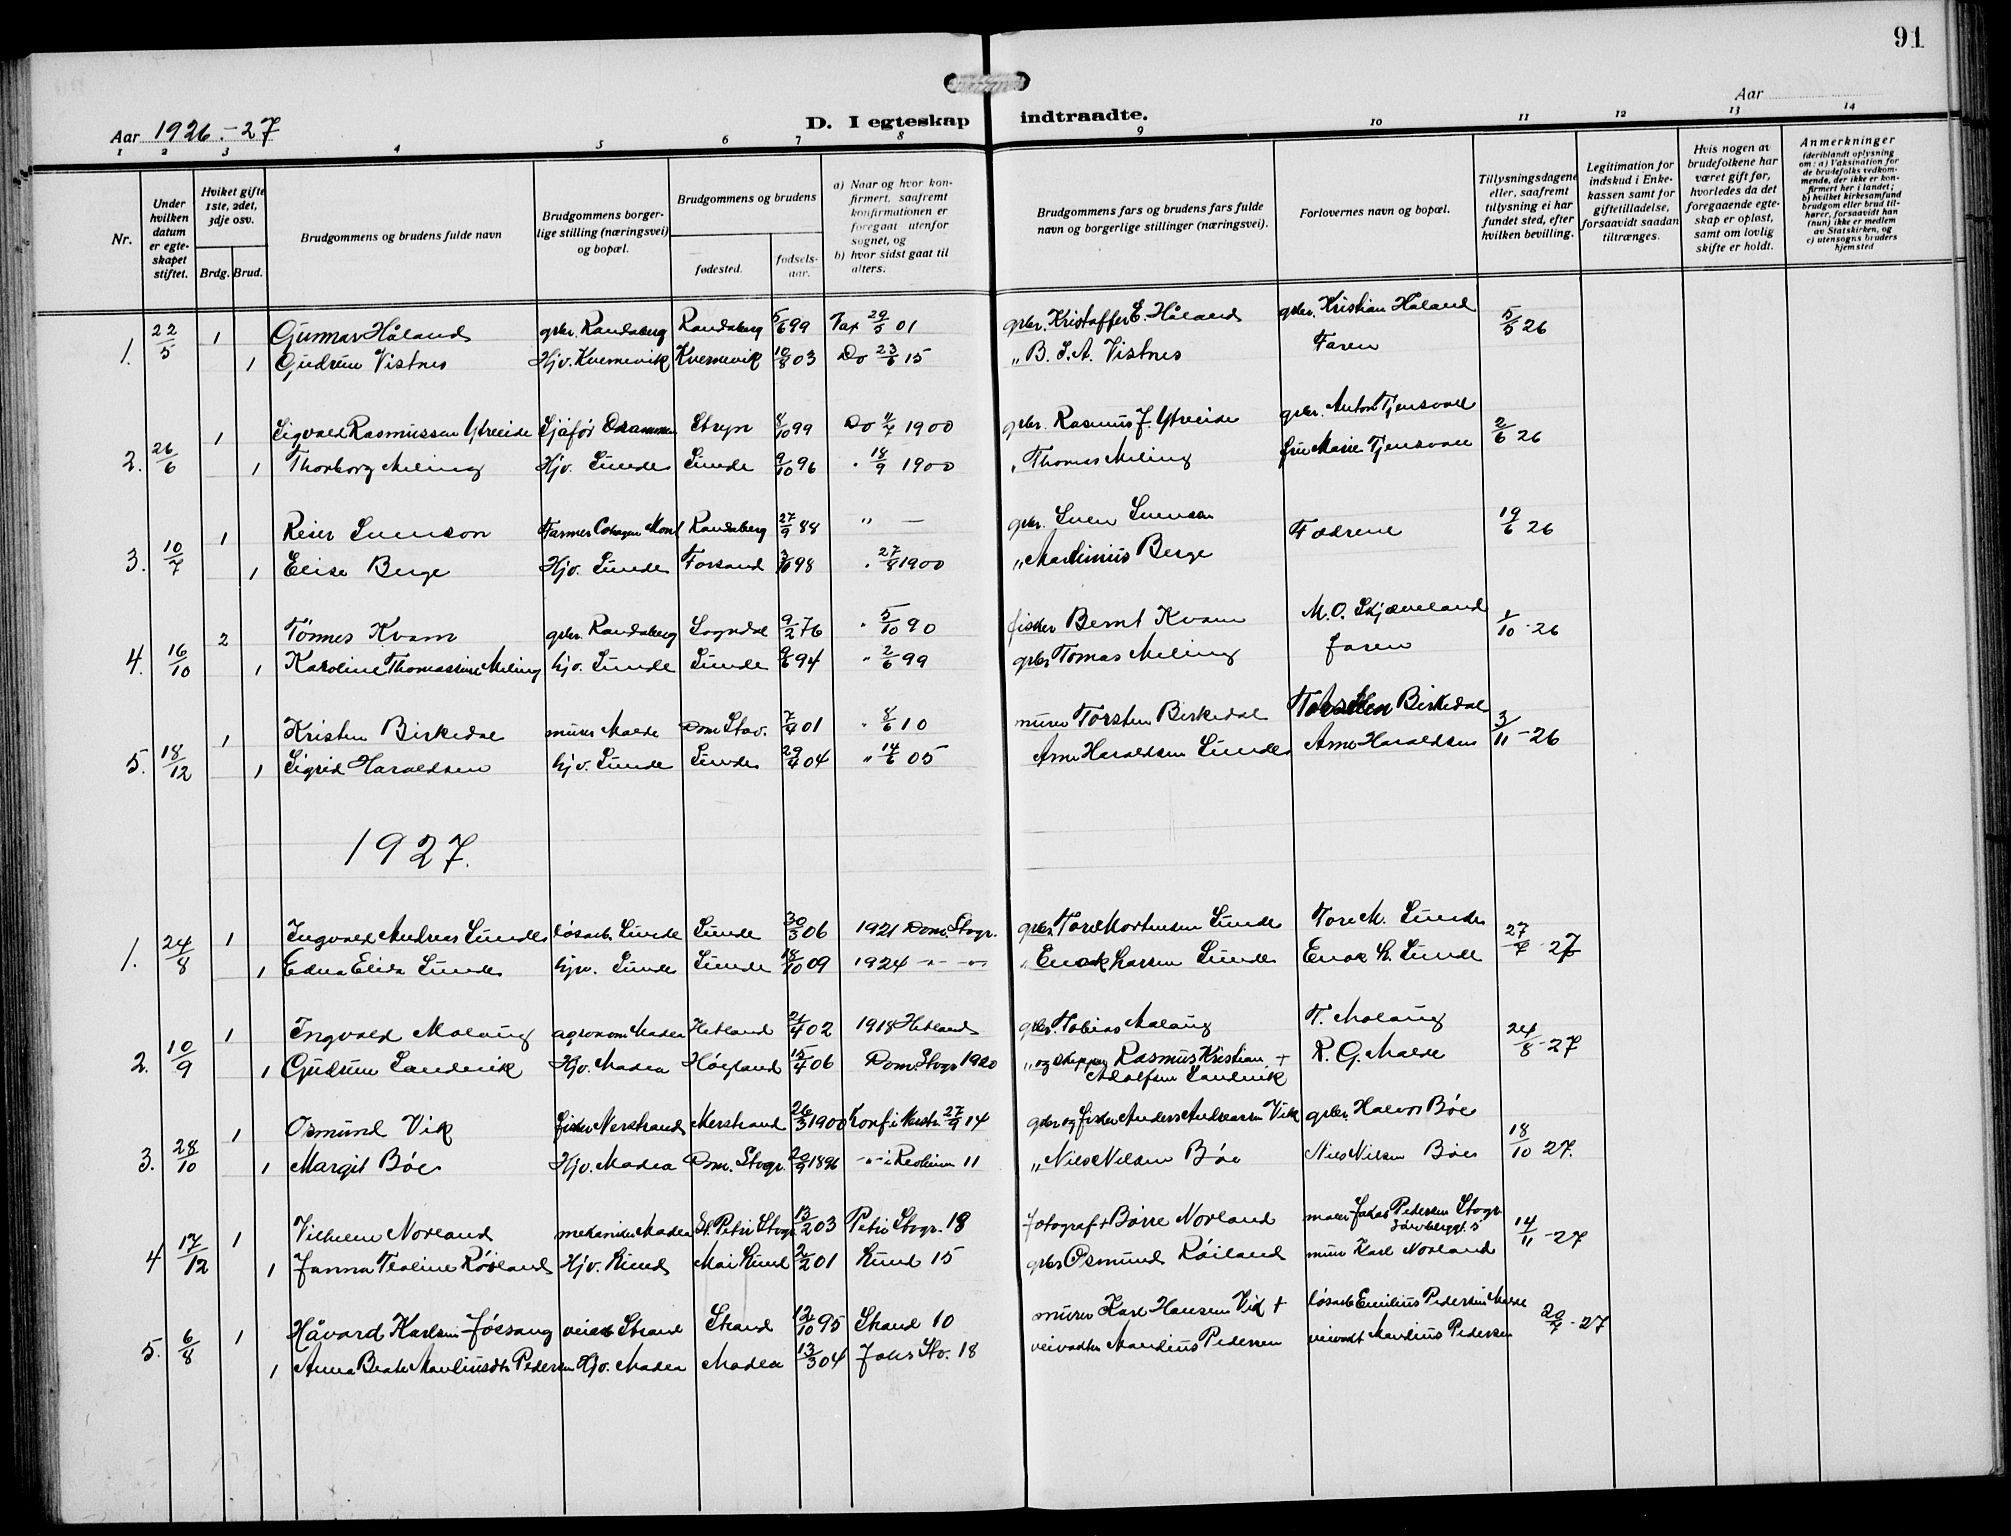 91
Aar 1926.-27
D. I egteskap indtraadte.
Aar
1 2 3 4 5 6 7 8 9 10 11 12 13 14
Nr.
Under hvilken datum er egteskapet stiftet.
Hvilket gifte 1ste, 2det, 3dje osv.
Brdg. Brud.
Brudgommens og brudens fulde navn
Brudgommens borgerlige stilling (næringsvei) og bopæl.
Brudgommens og brudens
fødested.
fødselsaar.
a) Naar og hvor konfirmert, saafremt konfirmationen er foregaat utenfor sognet, og
b) hvor sidst gaat til alters.
Brudgommens fars og brudens fars fulde navn og borgerlige stillinger (næringsvei).
Forlovernes navn og bopæl.
Tillysningsdagene eller, saafremt tillysning ei har fundet sted, efter hvilken bevilling.
Legitimation for indskud i Enkekassen samt for giftetilladelse, forsaavidt saadan tiltrænges.
Hvis nogen av brudefolkene har været gift før, hvorledes da det foregaaende egteskap er opløst, samt om lovlig skifte er holdt.
Anmerkninger
(deriblandt oplysning om: a) Vaksination for de brudefolks vedkommende, der ikke er konfirmert her i landet; b) hvilket kirkesamfund brudgom eller brud tilhører, forsaavidt han (hun) ikke er medlem av Statskirken, og c) utensogns bruders hjemsted
1. 22/5 1 Gunnar Håland gbr. Randaberg Randaberg 5/6 99 01 gbr. Kristoffer E. Håland gbr. Kristian Håland 5/5 26
1 Gudrun Vistnes Hjv. Kvernevik Kvernevik 10/8 03 Do 23/6 15 " B. S. A. Vistnes Faren
2. 26/6 1 Sigvald Rasmussen Ytreeide Sjåför Drammen Stryn 8/10 99 Do 1900 gbr. Rasmus J. Ytreeide gbr. Anton Tjensvoll 2/6 26
1 Thorborg Meling Hjv. Sunde Sunde 9/10 96 " 18/9 1900 " Thomas Meling fru Marie Tjensvoll
3. 10/7 1 Reier Svenson Farmer Mont Randaberg 27/9 88 " — gbr. Sven Svenson Fædrene 19/6 26
1 Elise Berge Hjv. Sunde Forsand 98 " 27/8 1900 " Martinius Berge
4. 16/10 2 Tönnes Kvam gbr. Randaberg Sogndal 9/2 76 " 5/10 90 fisker Bernt Kvam M. O. Skjæveland 1/10 - 26
1 Karoline Thomassine Meling hjv. Sunde Sunde 9/6 94 " 2/6 99 gbr Tomas Meling faren
5. 18/12 1 Kristen Birkedal murer Malde Dom Stav. 7/4 01 " 8/6 10 murer Torsten Birkedal Torsten Birkedal 3/11 - 26
1 Sigrid Haraldsen hjv. Sunde Sunde 29/4 04 " 14/6 05 Arne Haraldsen Sunde Arne Haraldsen
1927.
1. 24/8 1 Ingvald Andreas Sunde løsarb. Sunde Sunde 30/3 06 1921 Dom. Stvgr. gbr. Tore Mortensen Sunde Tore M. Sunde 27/7 - 27
1 Edna Elida Sunde hjv. Sunde Sunde 18/10 09 1924 - " - " " Enok Larsen Sunde Enok L. Sunde
2. 10/9 1 Ingvald Malaug agronom Madla Hetland 21/4 02 1918 Hetland gbr. Tobias Malaug T. Malaug 24/8 - 27
1 Gudrun Sandvik Hjv. Madla Höyland 15/4 06 Dom. Stvgr 1920 " og skipper Rasmus Kristian Adolfsen Sandvik + R. G. Malde
3. 28/10 1 Osmund Vik fisker Nerstrand Nerstrand 26/3 1900 Konf i Nerstr. 27/9 14 gbr og fisker Anders Andreassen Vik gbr. Halvor Böe 18/10 27.
1 Margit Böe Hjv. Madla Dom. Stvgr. 20/9 1896 - " - i Revheim 11 " Nils Nilsen Böe Nils Nilsen Böe
4 17/12 1 Vilhelm Norland mekaniker Madla St. Petri Stvgr 13/2 03 Petri Stvgr. 18 fotograf + Börre Norland maler Jakob Pedersen Stvgr 14/11 - 27
1 Janna Teoline Röiland Hjv. Lund Lund 2/2 01 Lund 15 gbr Osmund Röiland murer Karl Norland
5. 6/8 1 Håvard Karlsen Jössang veiarb Strand Strand 12/10 95 Strand 10 murer Karl Hansen Vik + løsarb Emilius Pedersen Malde 20/7 - 27
1 Anna Beate Mandiusdtr Pedersen Hjv. Madla Madla 13/3 04 Johs Stv. 18 veivokter Mandius Pedersen veivokt Mandius Pedersen